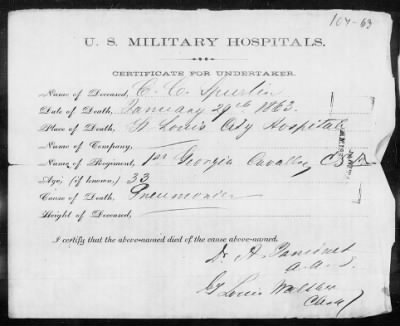 104-63
U. S. MILITARY HOSPITALS.
CERTIFICATE FOR UNDERTAKER.
Name of Deceased, C. C. Spurlin
Date of Death, January 29th 1863.
Place of Death, St Louis City Hospital
Name of Company,
Name of Regiment, 1st Georgia Cavalry C.S.A.
Age; (if known,) 33
Cause of Death, Pneumonia
Height of Deceased,
I certify that the above-named died of the cause above-named.
Dr. A.
A. A. S.
Clerk